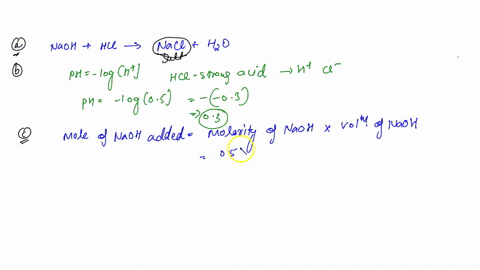 (a) NaOH + HCl → NaCl + H₂O
Salt
(b) PH = -log[H⁺] HCl - strong acid → H⁺ Cl⁻
PH = -log(0.5) = -(-0.3)
⇒ 0.3
(c) Mole of NaOH added = Molarity of NaOH × vol of NaOH
= 0.5